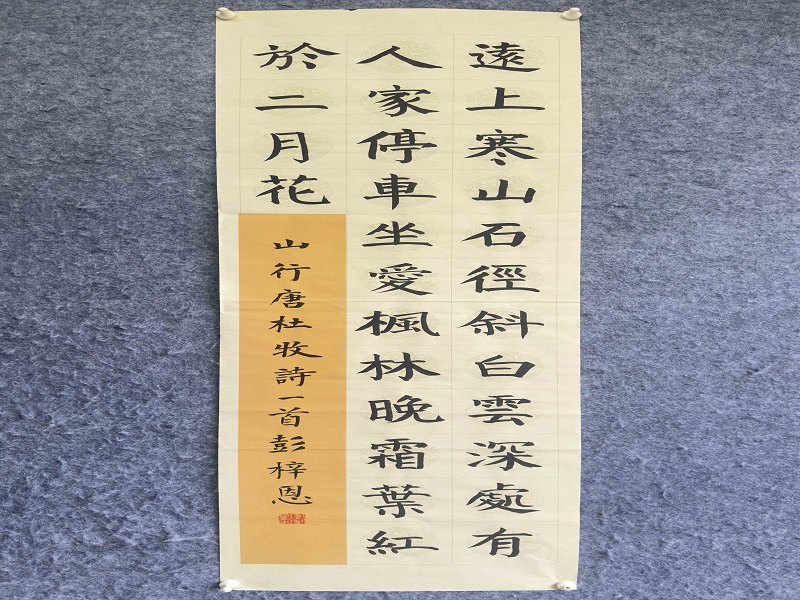 遠上寒山石徑斜白雲深處有
人家停車坐愛楓林晚霜葉紅
於二月花
山行唐杜牧詩一首彭梓恩